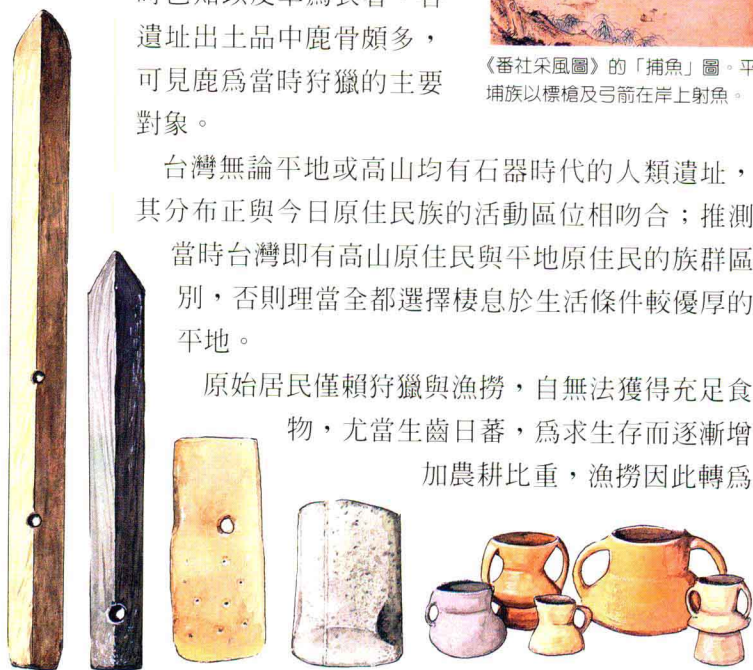 遺址出土品中鹿骨頗多，
可見鹿爲當時狩獵的主要
對象。
《番社采風圖》的「捕魚」圖。平
埔族以標槍及弓箭在岸上射魚。
台灣無論平地或高山均有石器時代的人類遺址，
其分布正與今日原住民族的活動區位相吻合；推測
當時台灣即有高山原住民與平地原住民的族群區
別，否則理當全都選擇棲息於生活條件較優厚的
平地。
原始居民僅賴狩獵與漁撈，自無法獲得充足食
物，尤當生齒日蕃，爲求生存而逐漸增
加農耕比重，漁撈因此轉爲